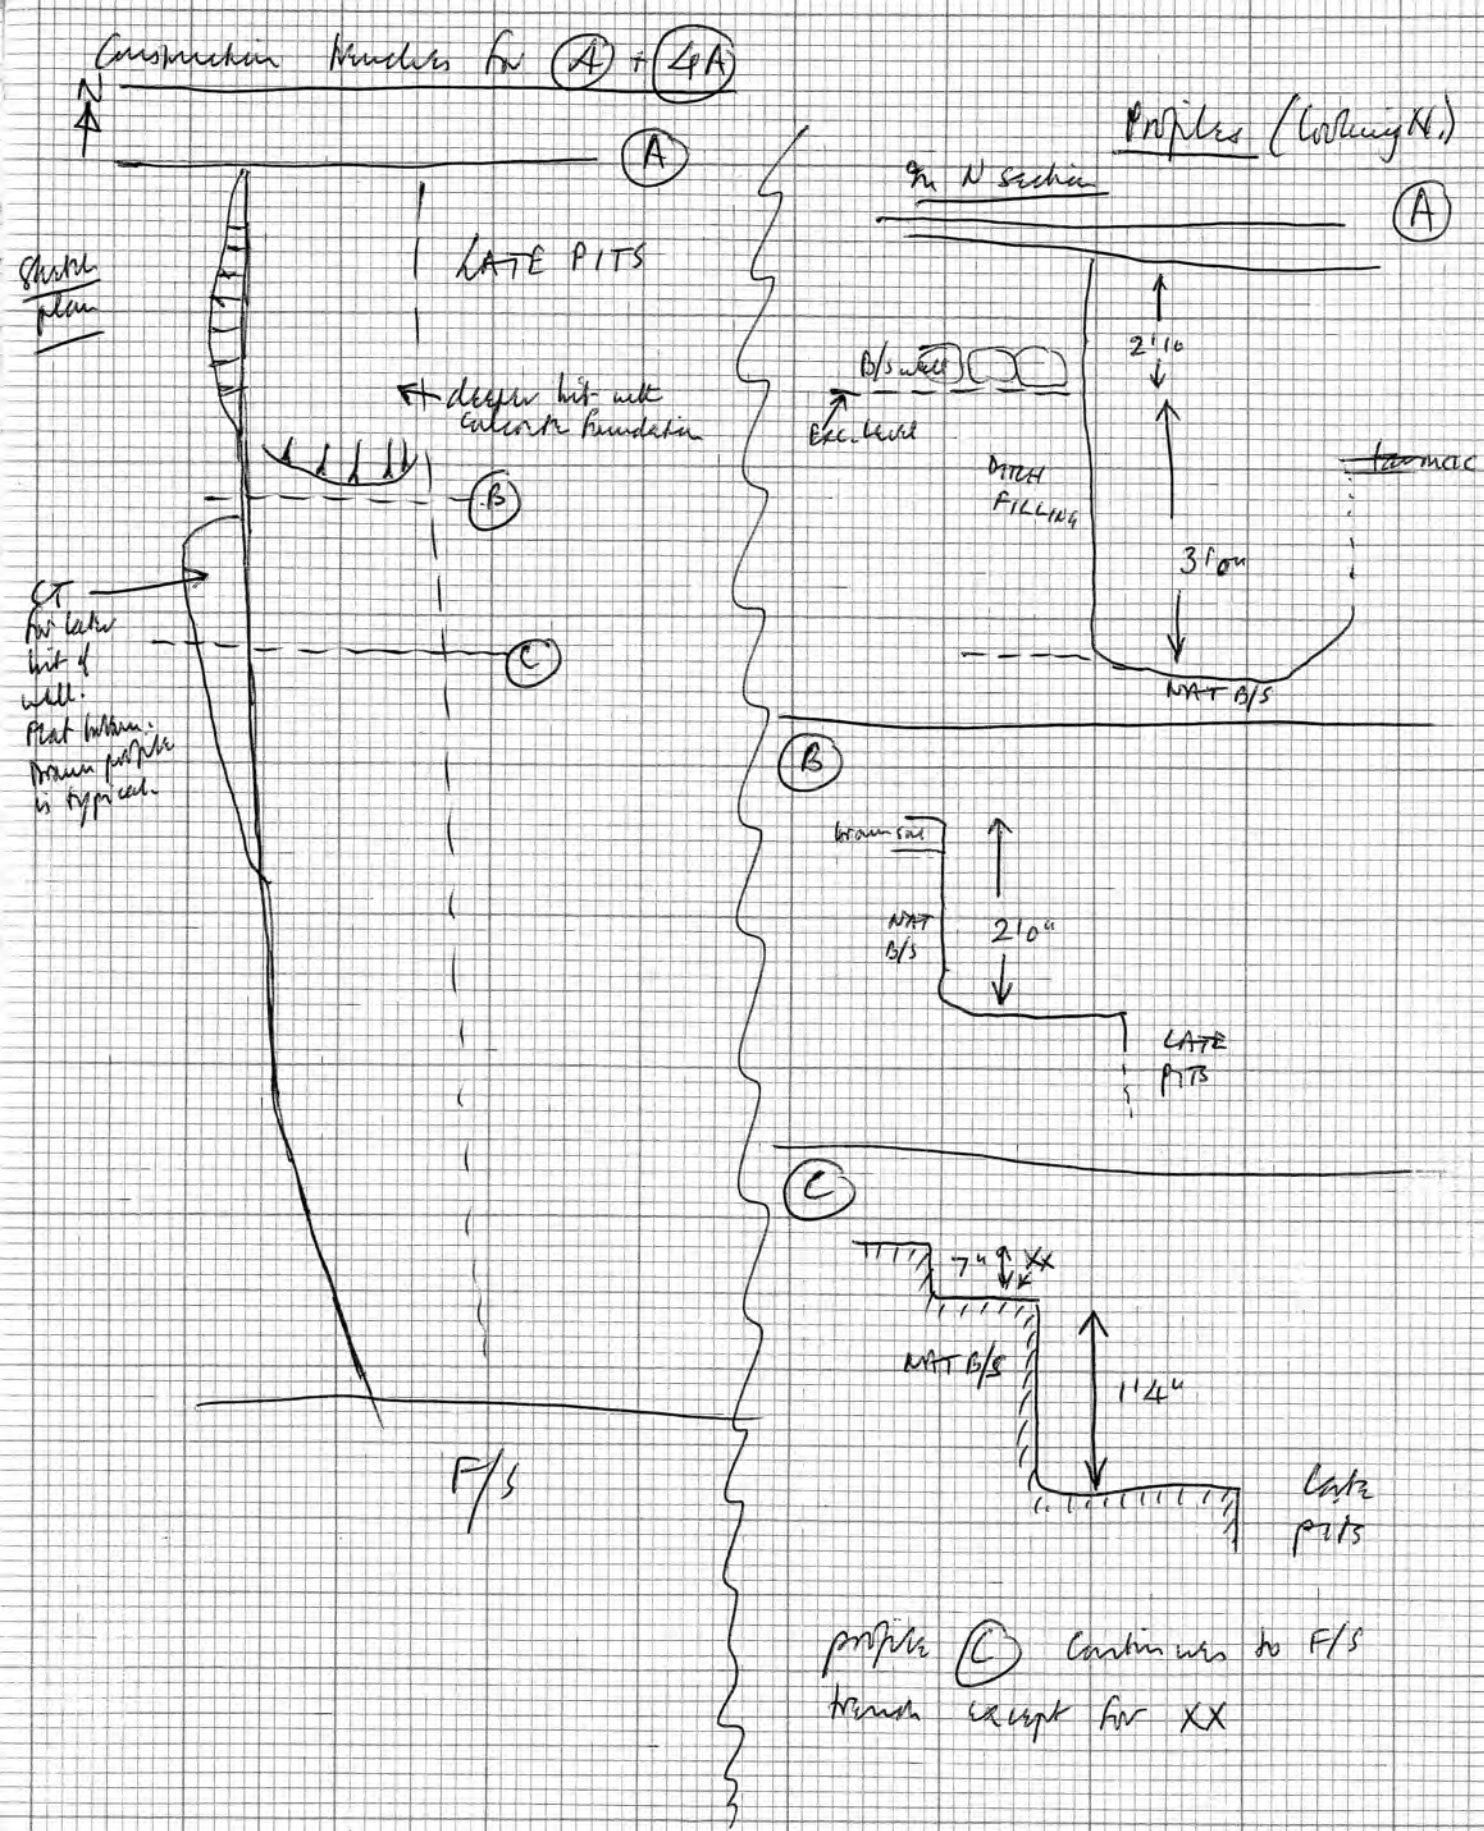 Construction trenches for (A) + (4A)
N
(A)
Sketch
plan
LATE PITS
deeper bit with
concrete foundation
(B)
CT
for later
bit of
wall.
Flat bottom.
Drawn profile
is typical.
(C)
F/S
Profiles (looking N.)
In N section
(A)
2'10
B/S wall
Exc. Level
DITCH
FILLING
tarmac
3'0"
NAT B/S
(B)
brown soil
NAT
B/S
2'0"
LATE
PITS
(C)
7" XX
NAT B/S
1'4"
Late
pits
profile (C) continues to F/S
trench except for XX